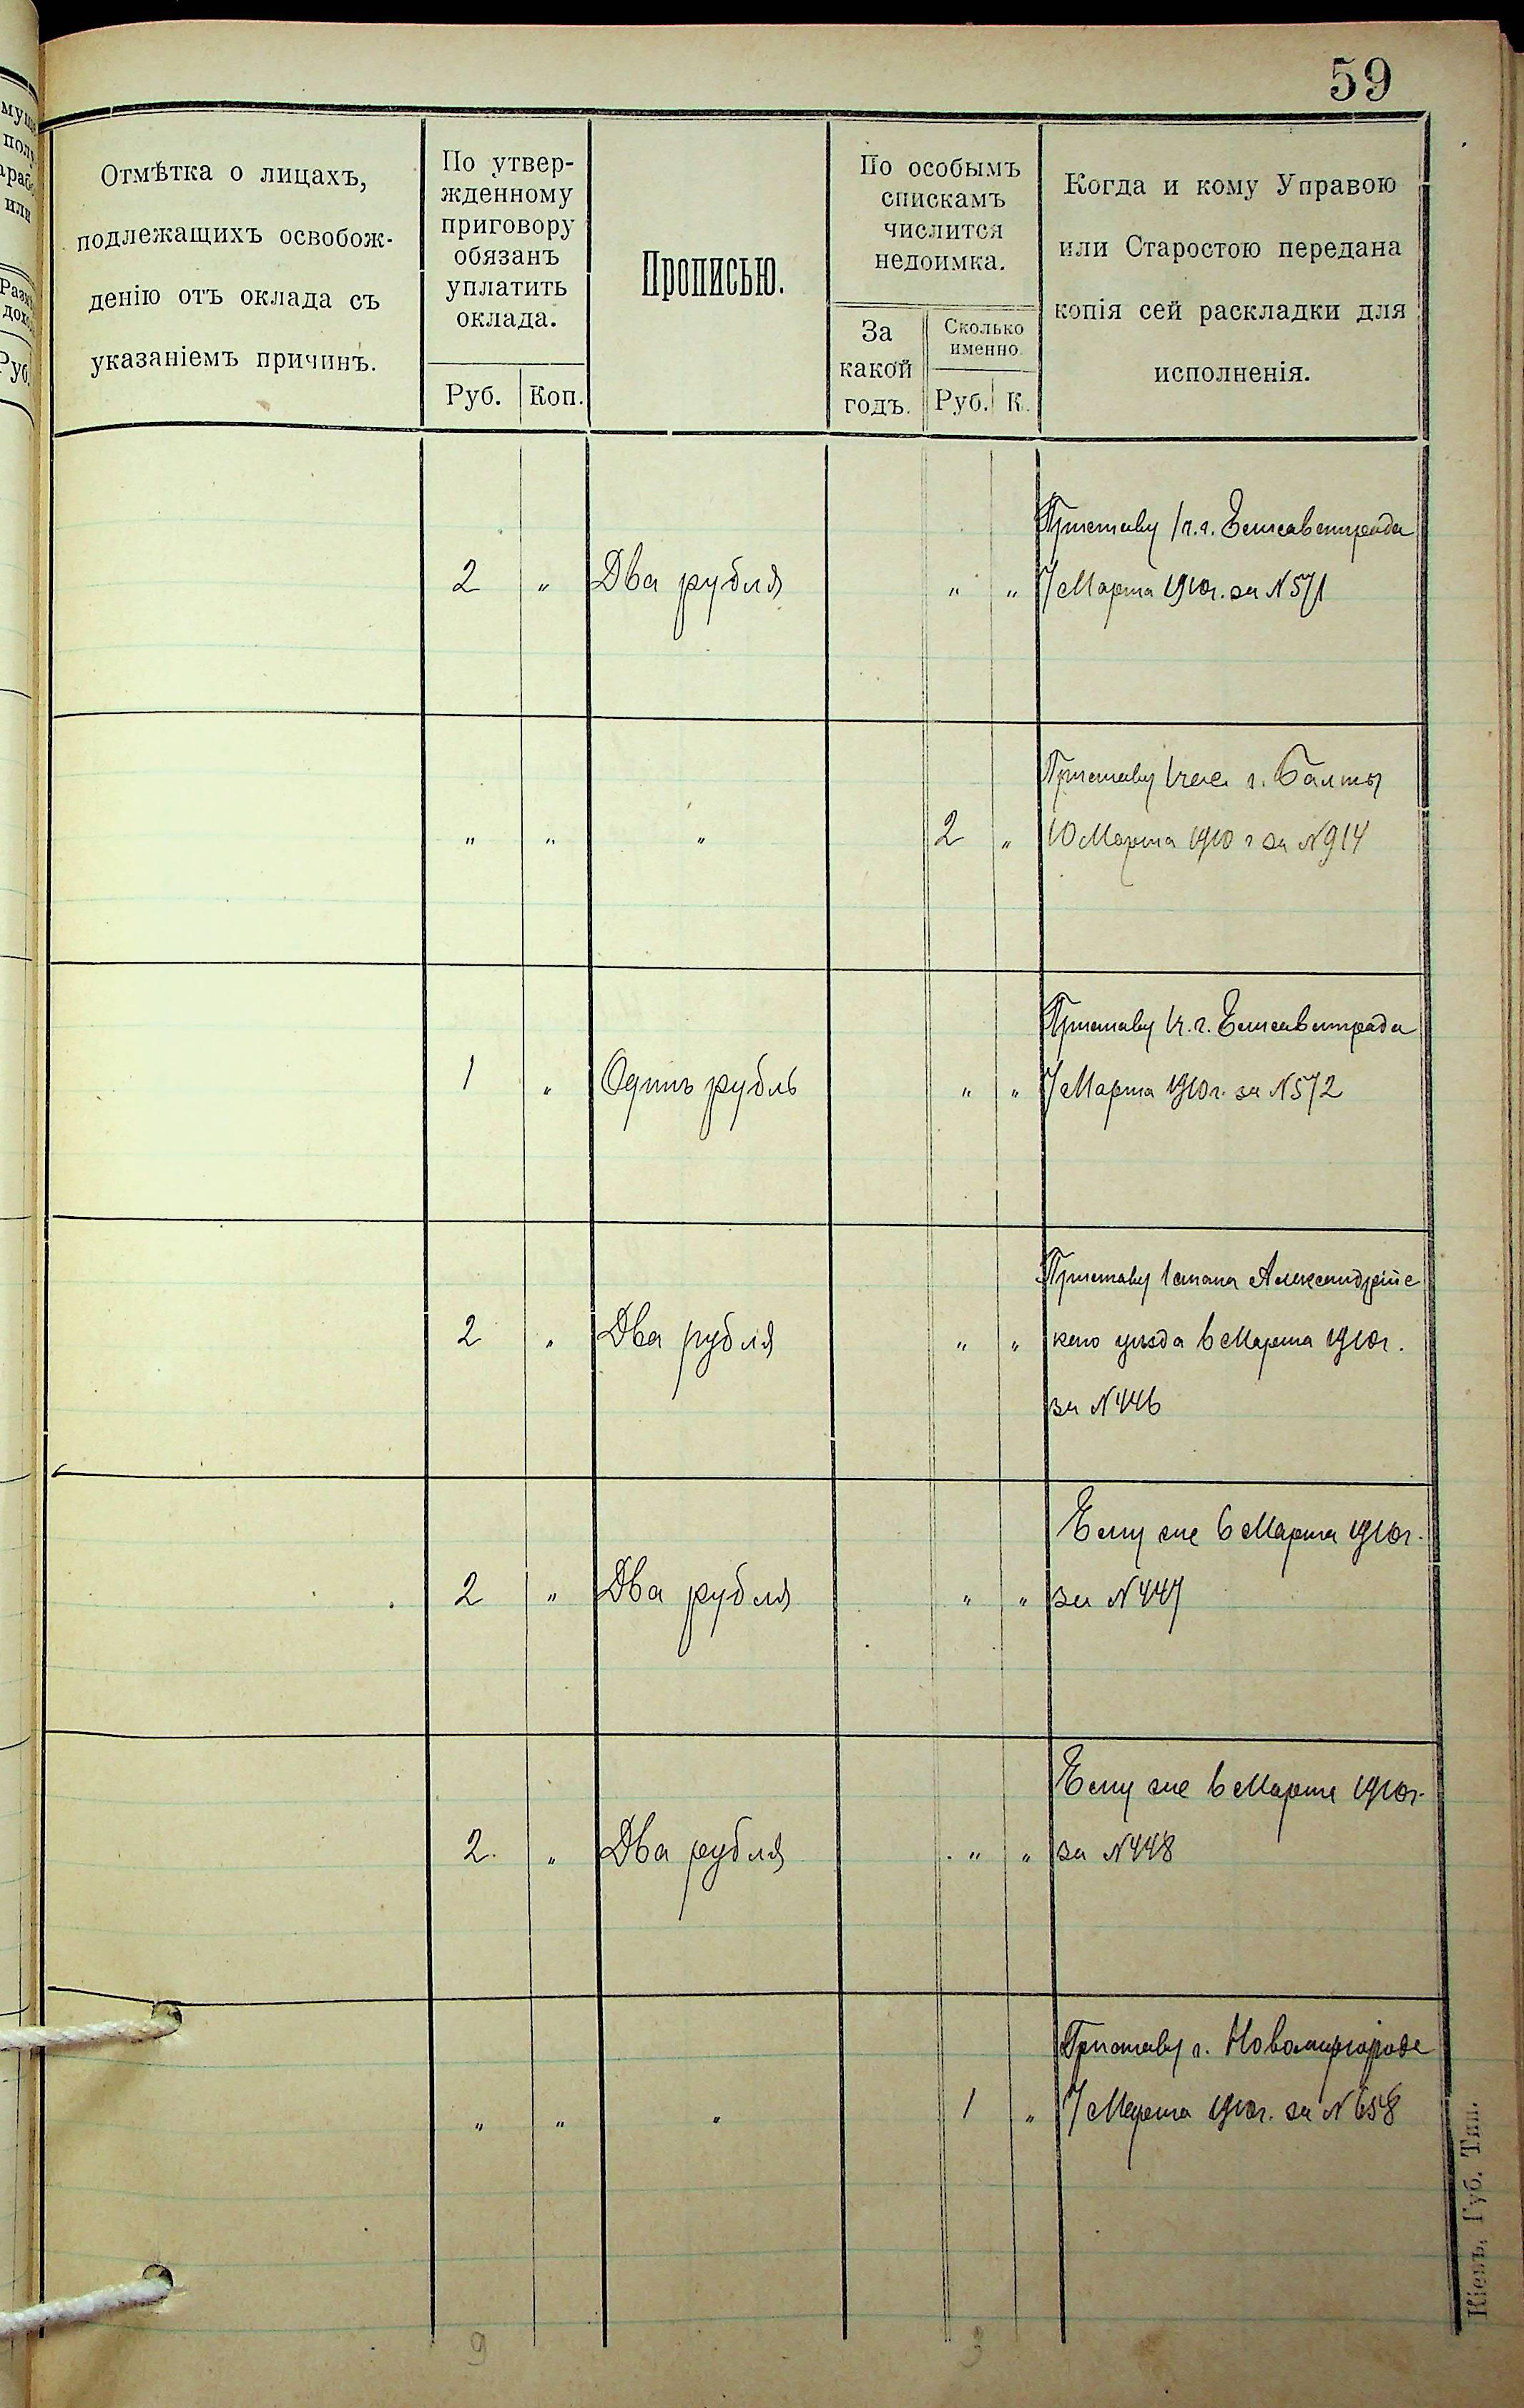 59
Отмѣтка о лицахъ,
подлежащихъ освобож-
денію отъ оклада съ
указаніемъ причинъ.
По утвер-
жденному
приговору
обязанъ
уплатить
оклада.
Руб. Коп.
Прописью.
По особымъ
спискамъ
числится
недоимка.
За
какой
годъ.
Сколько
именно
Руб. К.
Когда и кому Управою
или Старостою передана
копія сей раскладки для
исполненія.
Приставу 1 ч. г. Елисаветграда
2 " Два рубля " " 7 Марта 1910 г. за № 571
Приставу 1 час. г. Балты
" " " 2 " 10 Марта 1910 г за № 914
Приставу 1 ч. г. Елисаветграда
1 " Одинъ рубль " " 7 Марта 1910 г. за № 572
Приставу 1 стана Александрійс
2 " Два рубля " " кого уѣзда 6 Марта 1910 г.
за № 446
Ему же 6 Марта 1910 г.
2 " Два рубля " " за № 447
Ему же 6 Марта 1910 г.
2. " Два рубля " " за № 448
Приставу г. Новомиргорода
" " " 1 " 7 Марта 1910 г. за № 658
9 3
Кіевъ, Губ. Тип.
муще
полу
Руб.
или